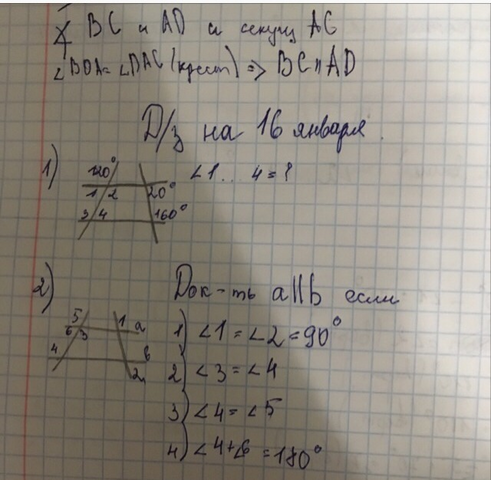 BC и AD и секущ AC
∠BDA=∠DAC (крест) => BC ॥ AD
Д/з на 16 января.
1)
120°
1 2 20°
3 4 160°
∠1 ... 4 = ?
2) Док-ть a||b если
5 1 a
6 3
4 в
2
1) ∠1 = ∠2 = 90°
2) ∠3 = ∠4
3) ∠4 = ∠5
4) ∠4+∠6 = 180°